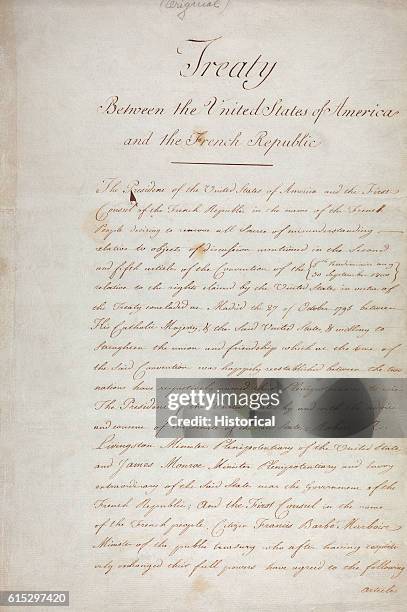 (Original)
Treaty
Between the United States of America
and the French Republic
The President of the United States of America and the First
Consul of the French Republic in the name of the French
People desiring to remove all Source of misunderstanding
relative to objects of discussion mentioned in the Second
and fifth articles of the Convention of the
30 September 1800
relative to the rights claimed by the United States in virtue of
the Treaty concluded at Madrid the 27 of October 1795 between
His Catholic Majesty, & the Said United States, & willing to
Strengthen the union and friendship which at the time of
the Said Convention was happily reestablished between the two
nations have respectively named their Plenipotentiaries to wit
The President by and with the advice
and consent of the
Livingston Minister Plenipotentiary of the United States
and James Monroe Minister Plenipotentiary and Envoy
extraordinary of the Said States near the Government of the
French Republic; And the First Consul in the name
of the French people, Citizen Francis Barbé Marbois
Minister of the public treasury who after having respecti
vely exchanged their full powers have agreed to the following
articles
gettyimages®
Historical
615297420